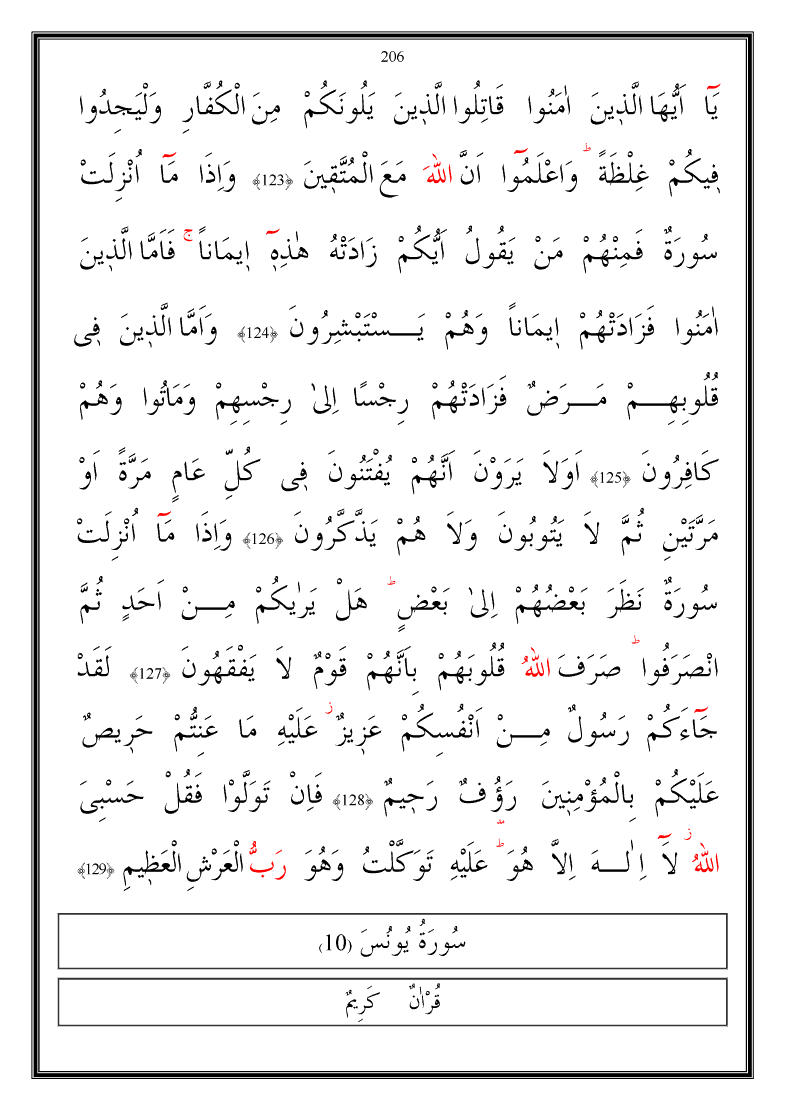 206
يَٓا اَيُّهَا الَّذٖينَ اٰمَنُوا قَاتِلُوا الَّذٖينَ يَلُونَكُمْ مِنَ الْكُفَّارِ وَلْيَجِدُوا
فٖيكُمْ غِلْظَةً ؕ وَاعْلَمُٓوا اَنَّ اللّٰهَ مَعَ الْمُتَّقٖينَ ﴿123﴾ وَاِذَا مَٓا اُنْزِلَتْ
سُورَةٌ فَمِنْهُمْ مَنْ يَقُولُ اَيُّكُمْ زَادَتْهُ هٰذِهٖٓ اٖيمَاناً ۚ فَاَمَّا الَّذٖينَ
اٰمَنُوا فَزَادَتْهُمْ اٖيمَاناً وَهُمْ يَـــسْتَبْشِرُونَ ﴿124﴾ وَاَمَّا الَّذٖينَ فٖى
قُلُوبِهِـــمْ مَـــرَضٌ فَزَادَتْهُمْ رِجْسًا اِلىٰ رِجْسِهِمْ وَمَاتُوا وَهُمْ
كَافِرُونَ ﴿125﴾ اَوَلاَ يَرَوْنَ اَنَّهُمْ يُفْتَنُونَ فٖى كُلِّ عَامٍ مَرَّةً اَوْ
مَرَّتَيْنِ ثُمَّ لاَ يَتُوبُونَ وَلاَ هُمْ يَذَّكَّرُونَ ﴿126﴾ وَاِذَا مَٓا اُنْزِلَتْ
سُورَةٌ نَظَرَ بَعْضُهُمْ اِلىٰ بَعْضٍ ؕ هَلْ يَرٰيكُمْ مِـــنْ اَحَدٍ ثُمَّ
انْصَرَفُوا ؕ صَرَفَ اللّٰهُ قُلُوبَهُمْ بِاَنَّهُمْ قَوْمٌ لاَ يَفْقَهُونَ ﴿127﴾ لَقَدْ
جَٓاءَكُمْ رَسُولٌ مِـــنْ اَنْفُسِكُمْ عَزٖيزٌ ؗ عَلَيْهِ مَا عَنِتُّمْ حَرٖيصٌ
عَلَيْكُمْ بِالْمُؤْمِنٖينَ رَؤُفٌ رَحٖيمٌ ﴿128﴾ فَاِنْ تَوَلَّوْا فَقُلْ حَسْبِىَ
اللّٰهُ ؗ لَٓا اِلٰـــهَ اِلاَّ هُوَ ؕ عَلَيْهِ تَوَكَّلْتُ وَهُوَ رَبُّ الْعَرْشِ الْعَظٖيمِ ﴿129﴾
سُورَةُ يُونُسَ (10)
قُرْاٰنٌ كَرٖيمٌ